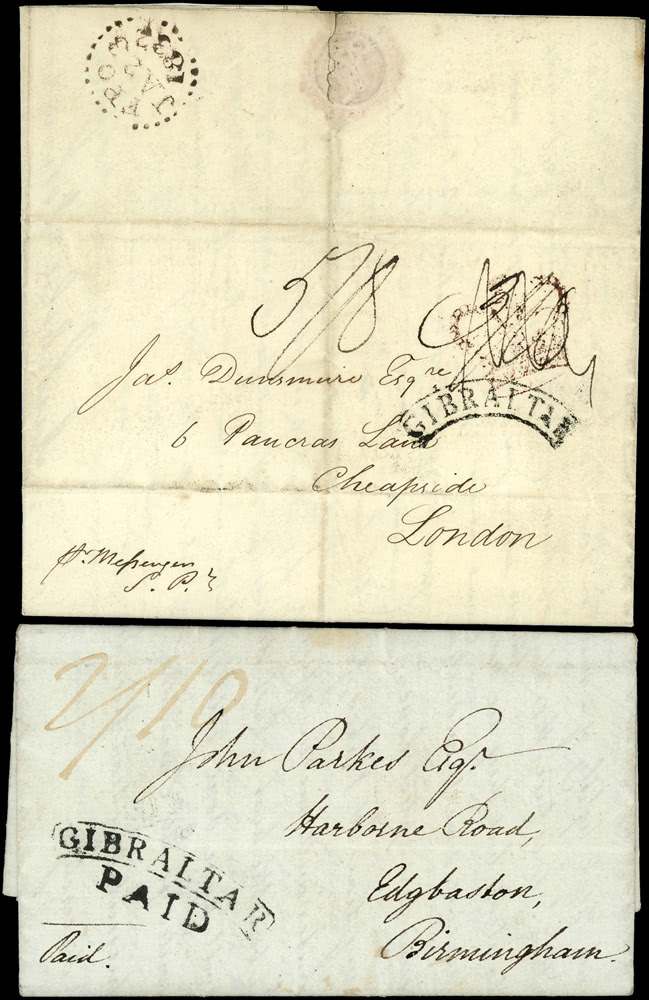 FPO
JA 2
1832
5/8
Jas. Dunsmure Esqre
GIBRALTAR
6 Pancras Lane
Cheapside
London
pr. Messenger
S. P.
2/10
John Parkes Esqr.
Harborne Road,
GIBRALTAR
PAID
Edgbaston,
Paid.
Birmingham.